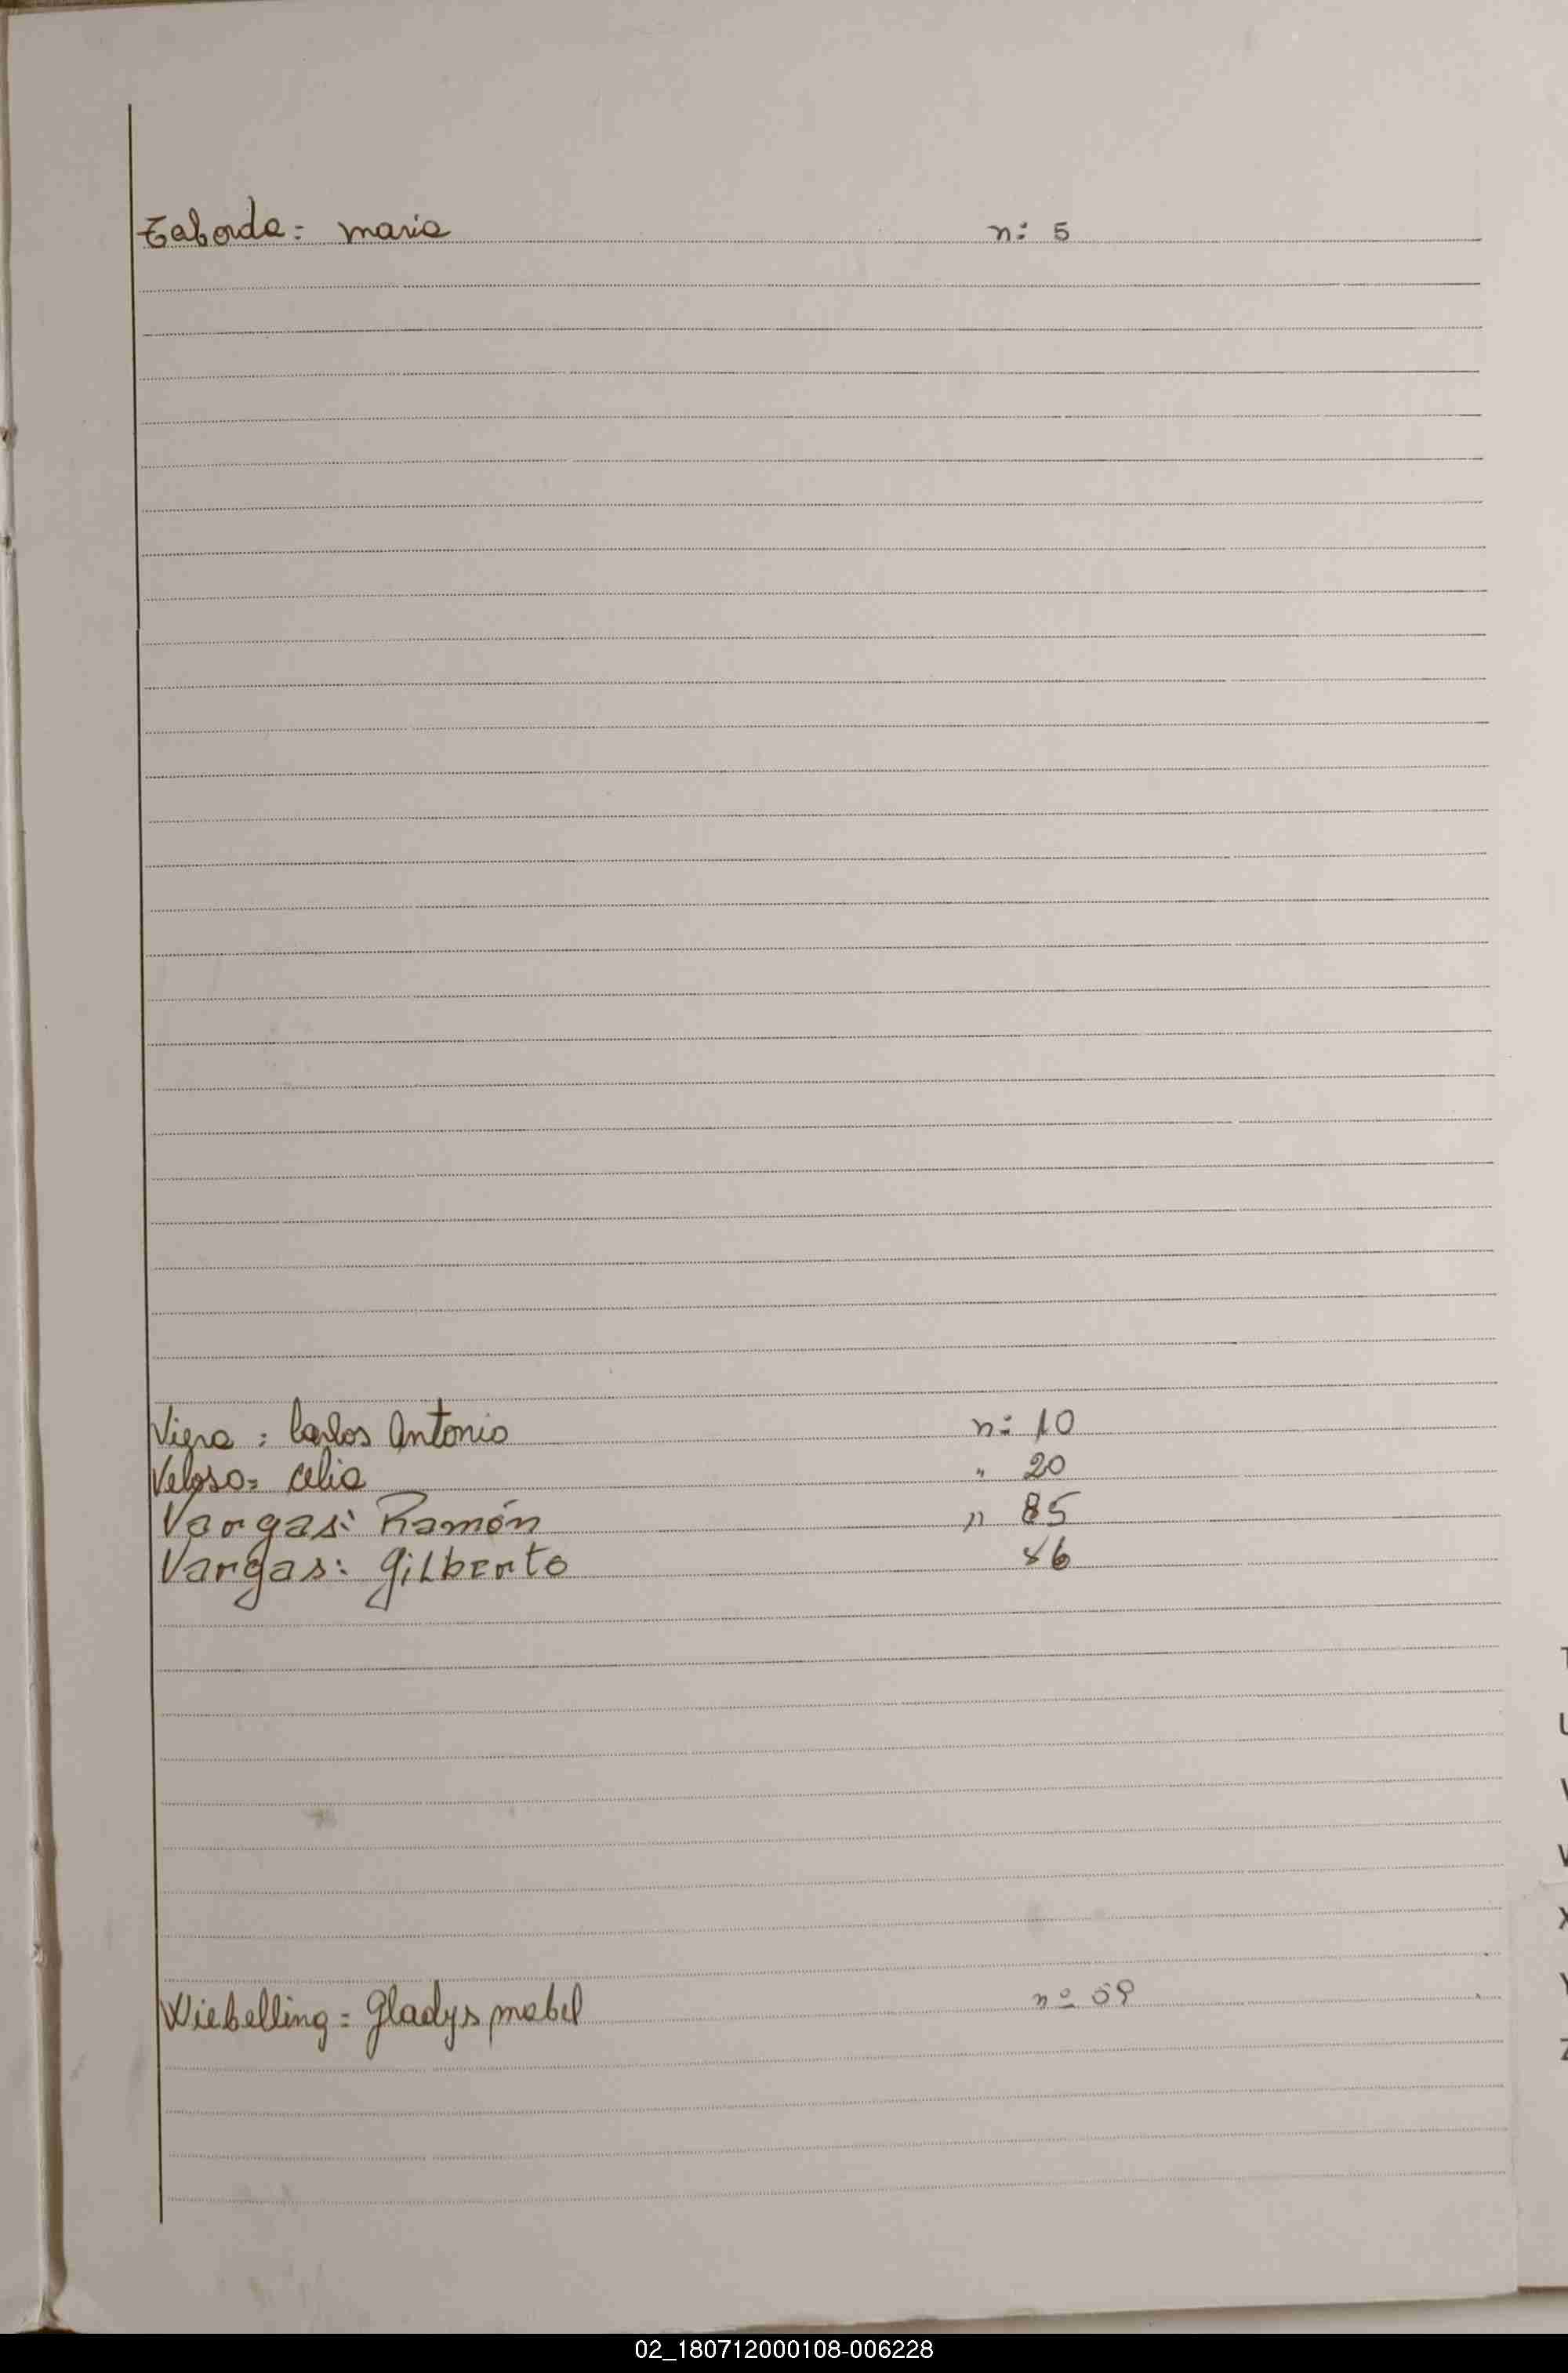 Taborda = maria n: 5
Viera : Carlos Antonio n: 10
Veloso = celia " 20
Vargas: Ramón " 85
Vargas: gilberto 86
Wiebelling = gladys mabel nº 59
T
U
V
W
X
Y
Z
02_180712000108-006228